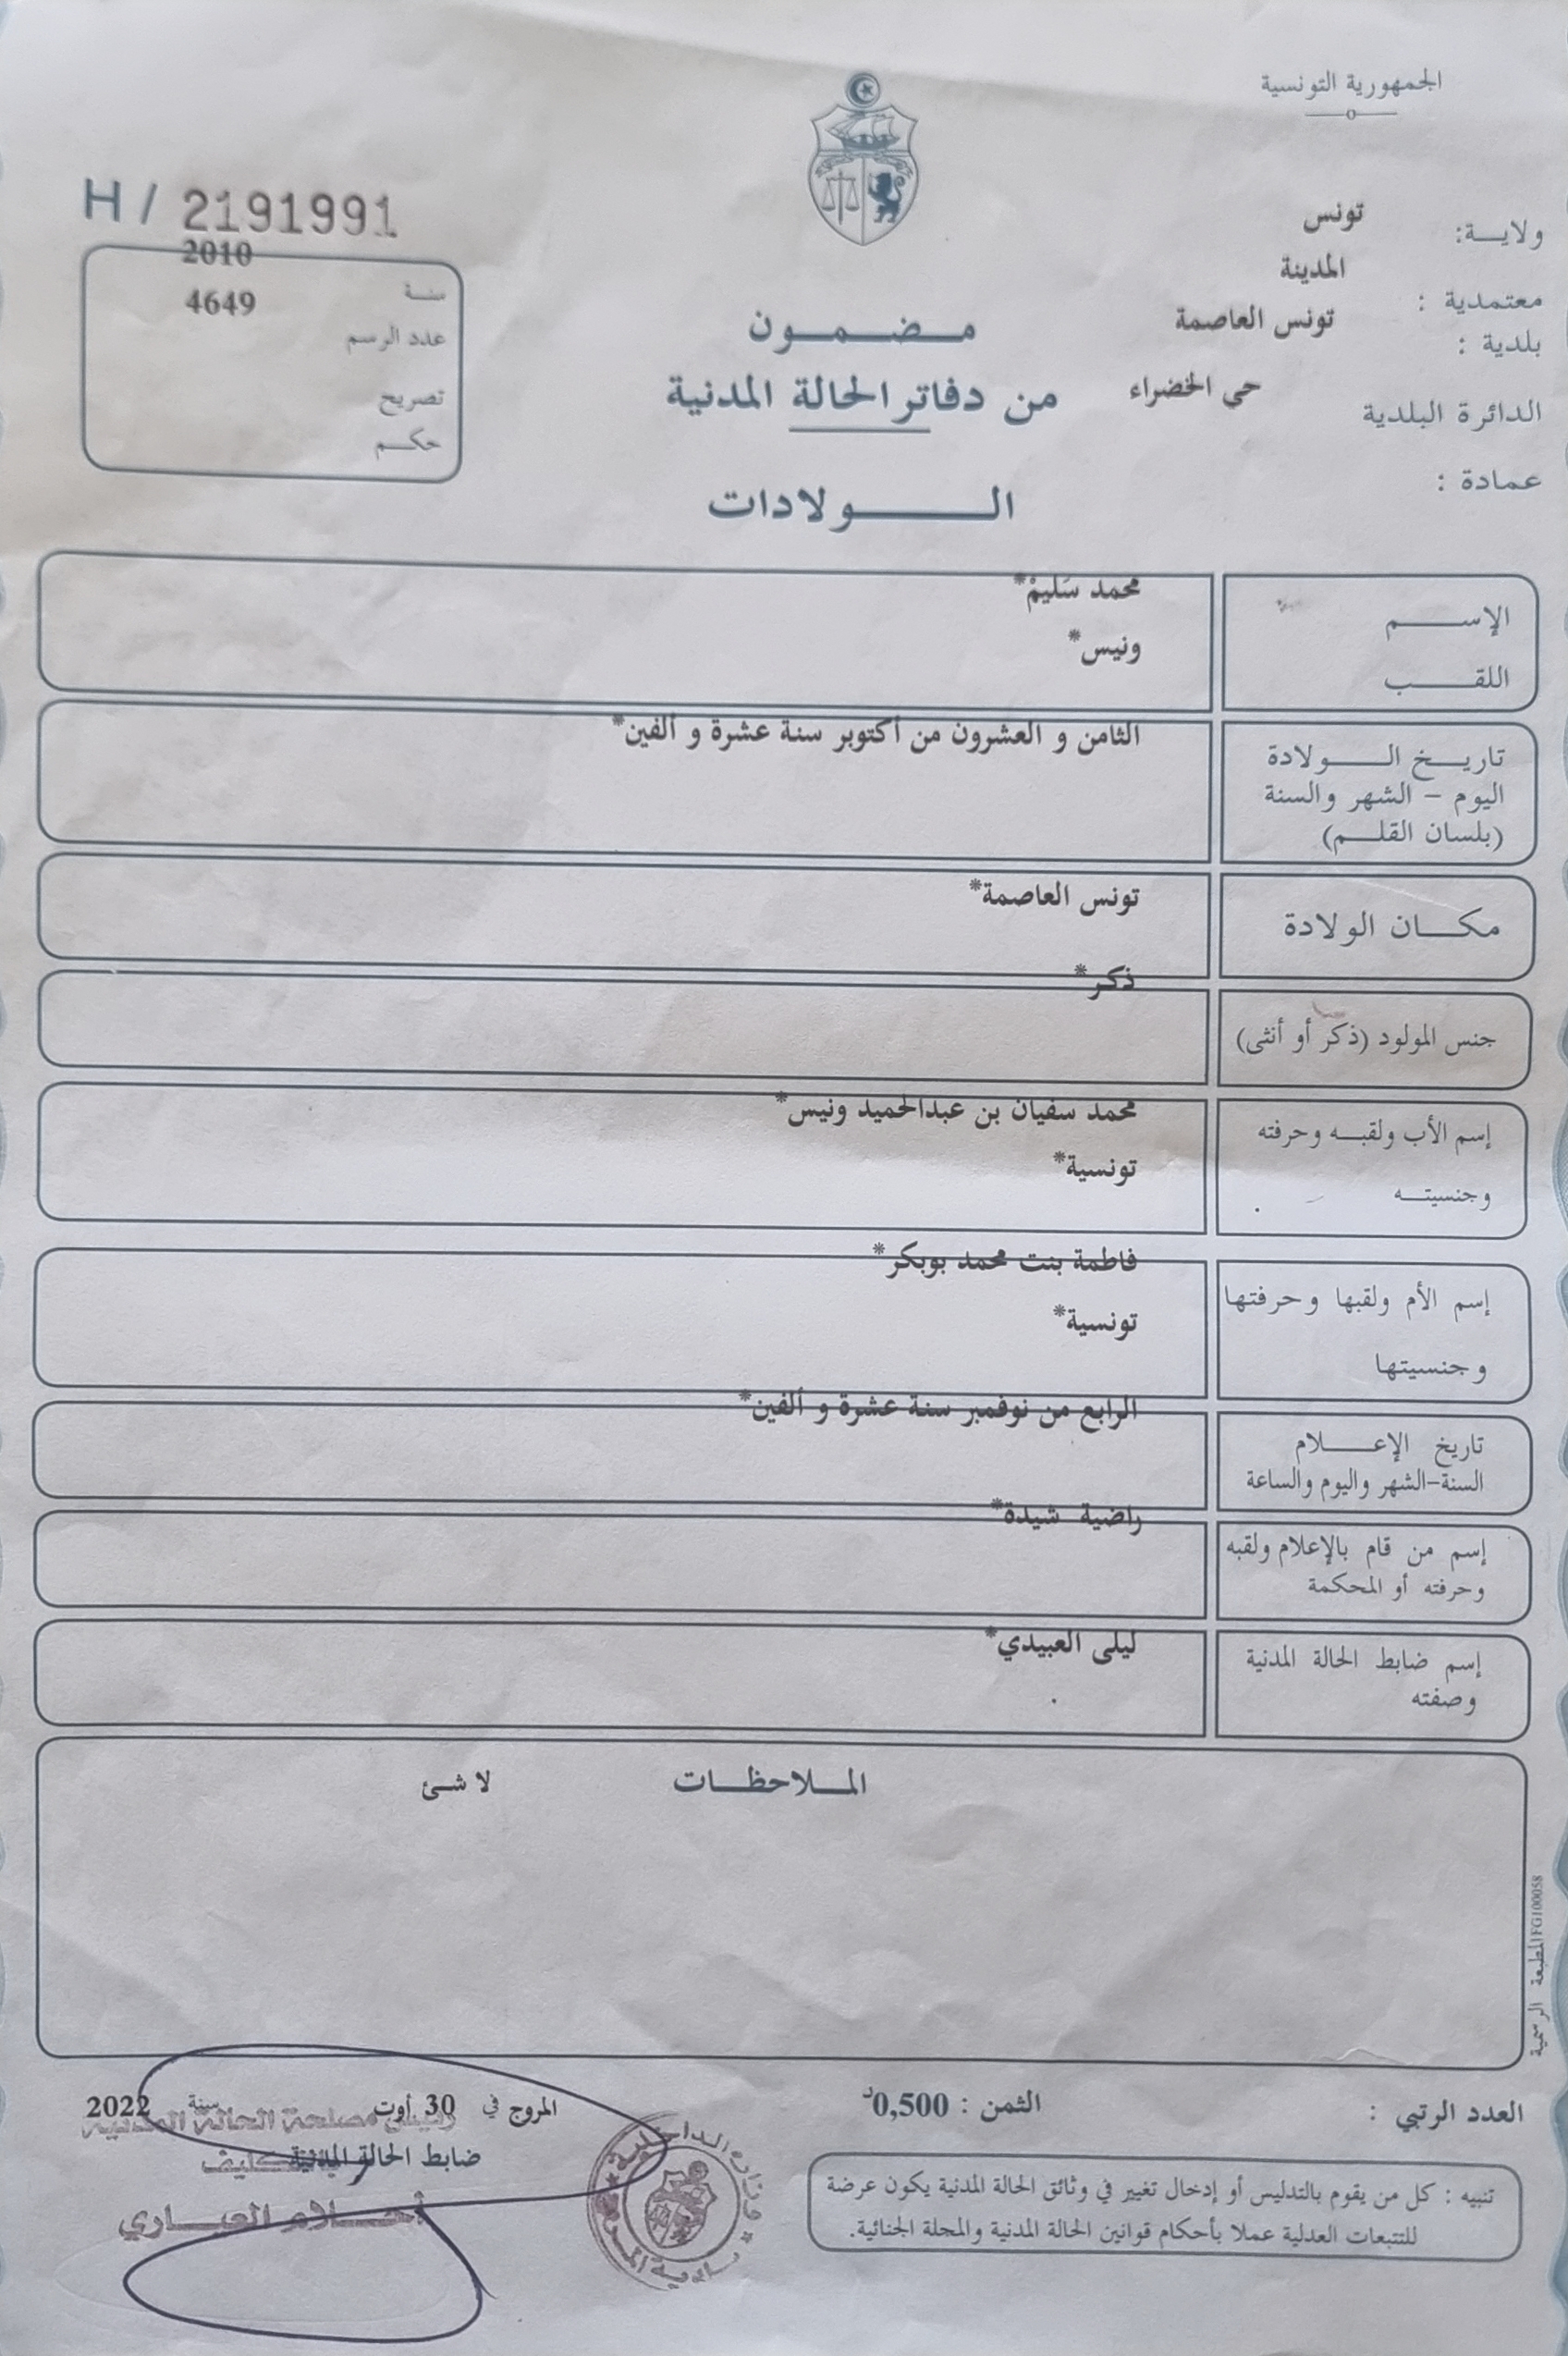 الجمهورية التونسية
ولايـــة: تونس
معتمدية : المدينة
بلدية : تونس العاصمة
الدائرة البلدية حي الخضراء
عمادة :
H / 2191991
سنة 2010
عدد الرسم 4649
تصريح
حكم
مضمون
من دفاتر الحالة المدنية
الولادات
الإسم محمد سَليمْ*
اللقب ونيس*
تاريخ الولادة الثامن و العشرون من أكتوبر سنة عشرة و ألفين*
اليوم – الشهر والسنة
(بلسان القلم)
مكان الولادة تونس العاصمة*
جنس المولود (ذكر أو أنثى) ذكر*
إسم الأب ولقبه وحرفته محمد سفيان بن عبدالحميد ونيس*
وجنسيته تونسية*
إسم الأم ولقبها وحرفتها فاطمة بنت محمد بوبكر*
وجنسيتها تونسية*
تاريخ الإعلام الرابع من نوفمبر سنة عشرة و ألفين*
السنة-الشهر واليوم والساعة
إسم من قام بالإعلام ولقبه راضية شيدة*
وحرفته أو المحكمة
إسم ضابط الحالة المدنية ليلى العبيدي*
وصفته
الملاحظات لا شئ
المطبعة الرسمية FG100058
العدد الرتبي :
الثمن : 0,500د
المروج في 30 أوت سنة 2022
رئيس مصلحة الحالة المدنية
ضابط الحالة المدنية
أحلام العياري
وزارة الداخلية
بلدية المروج
تنبيه : كل من يقوم بالتدليس أو إدخال تغيير في وثائق الحالة المدنية يكون عرضة
للتتبعات العدلية عملا بأحكام قوانين الحالة المدنية والمجلة الجنائية.